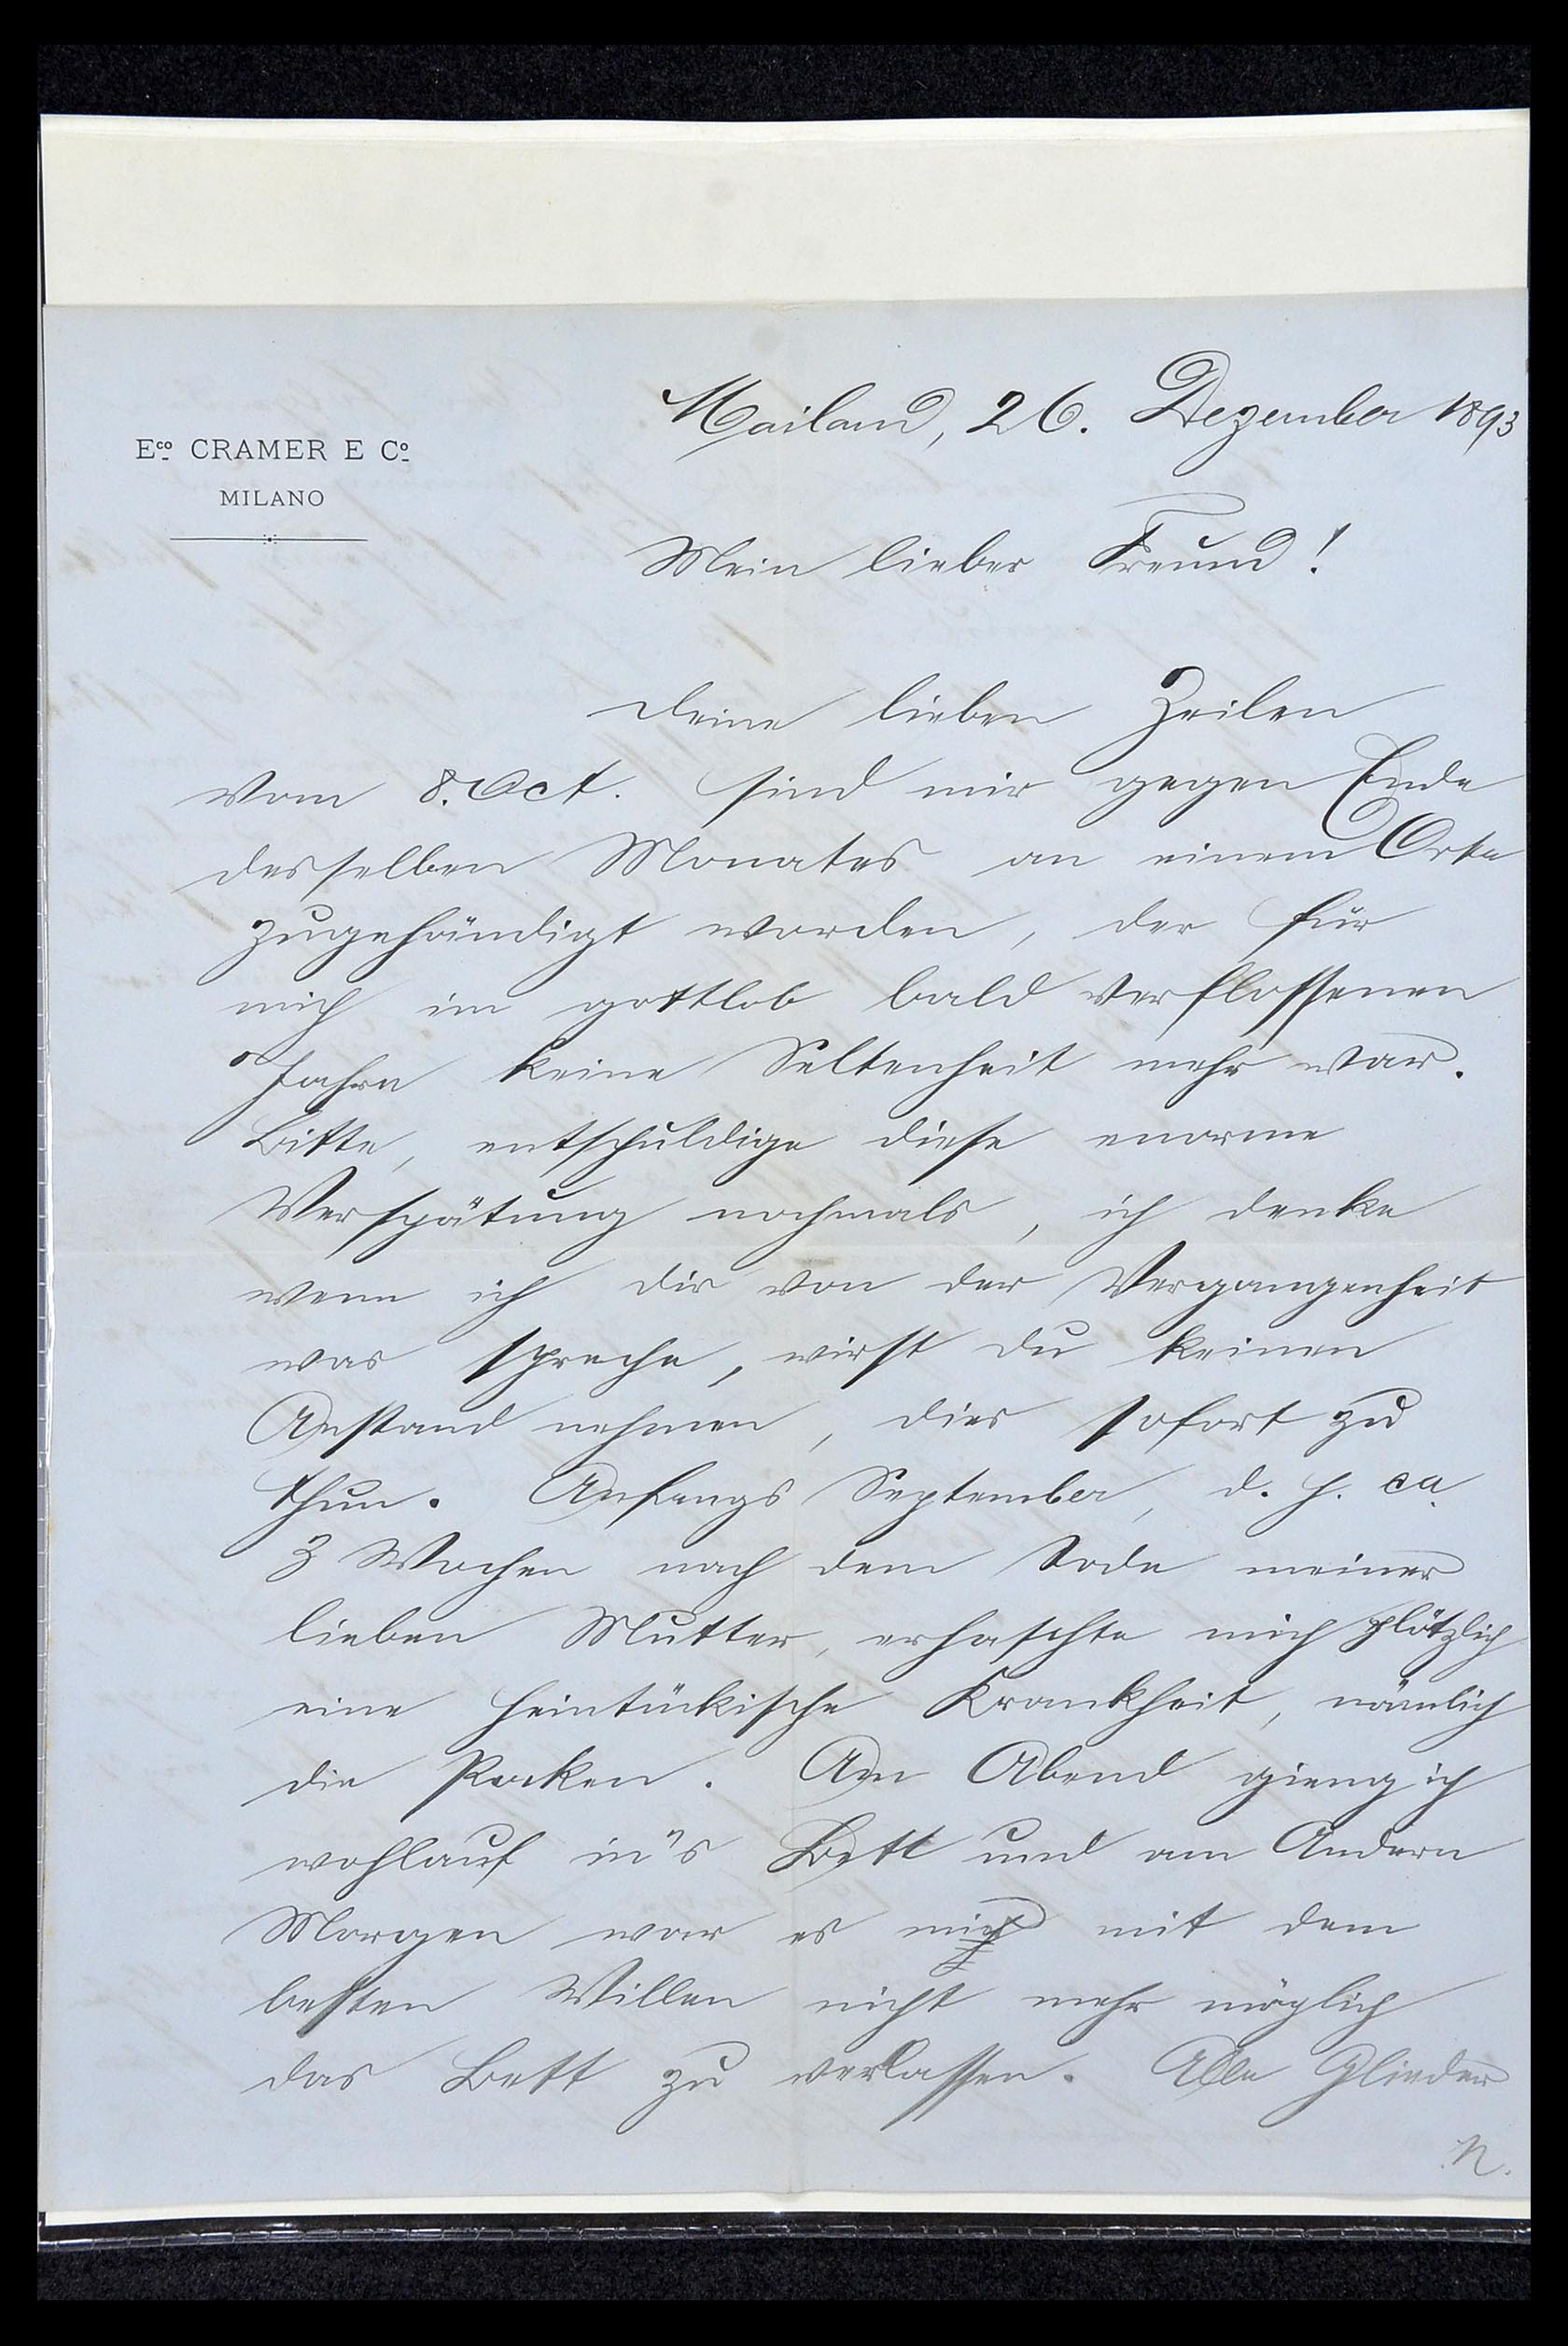 Mailand, 26. Dezember 1893
Eco CRAMER E Co
MILANO
Mein lieber Freund!
Deine lieben Zeilen
vom 8. Oct. sind mir gegen Ende
desselben Monates an einem Orte
zugehändigt worden, der für
mich im gottlob bald verflossenen
Jahre keine Seltenheit mehr war.
Bitte, entschuldige diese enorme
Verspätung nochmals, ich denke
wenn ich Dir von der Vergangenheit
was spreche, wirst Du keinen
Anstand nehmen, dies sofort zu
thun. Anfangs September, d. h. ca
3 Wochen nach dem Tode meiner
lieben Mutter, erhaschte mich plötzlich
eine heimtückische Krankheit, nämlich
die Pocken. Am Abend gieng ich
wohlauf in's Bett und am Andern
Morgen war es mir mit dem
besten Willen nicht mehr möglich
das Bett zu verlassen. Alle Glieder